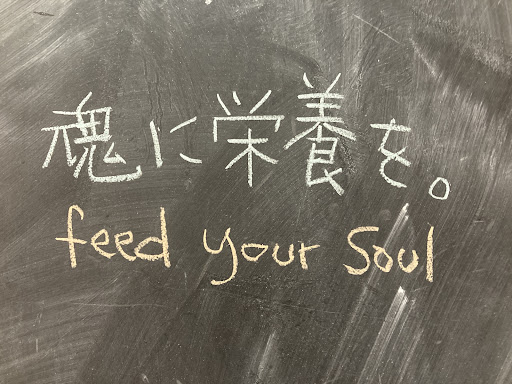 魂に栄養を。
feed your soul